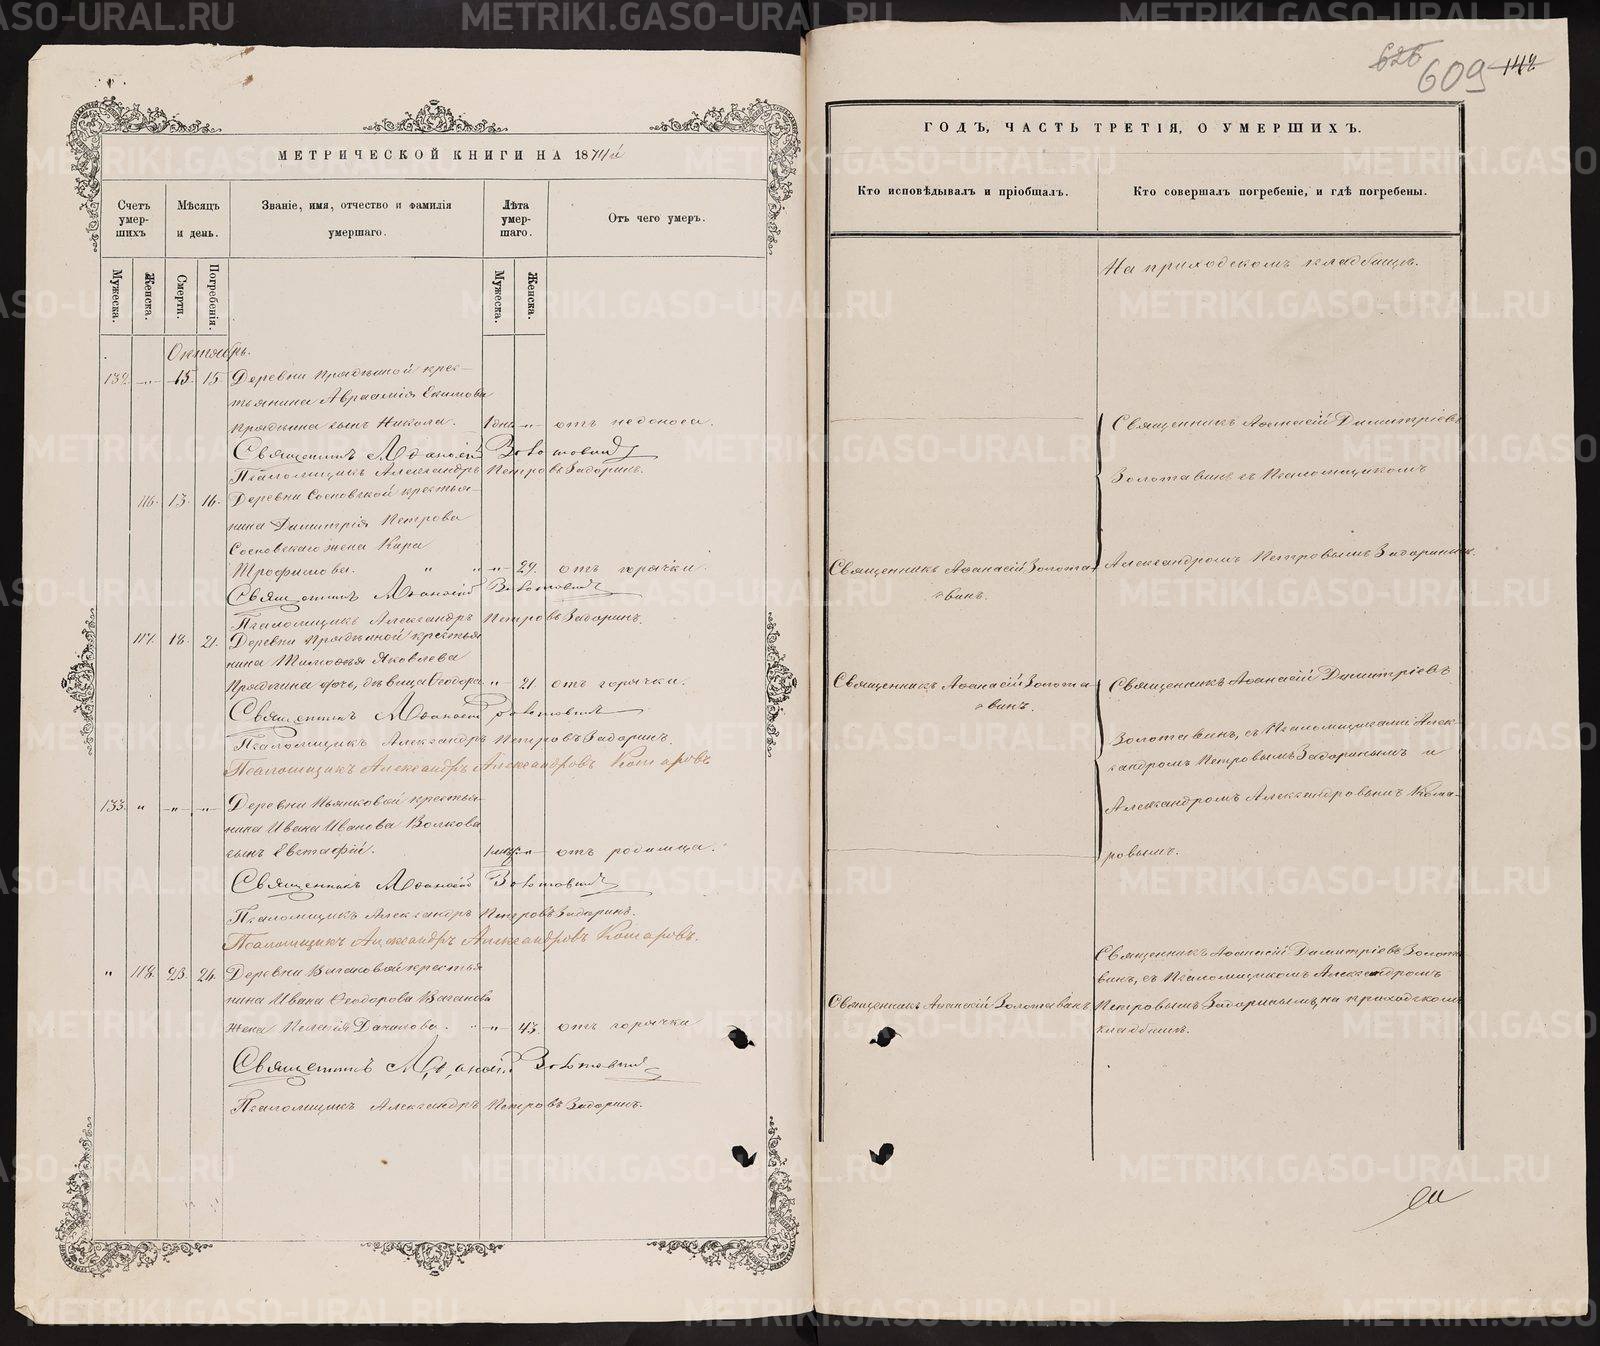 МЕТРИЧЕСКОЙ КНИГИ НА 1874й
Счетъ умер-шихъ
Мѣсяцъ и день.
Званіе, имя, отчество и фамилія умершаго.
Лѣта умер-шаго.
Отъ чего умеръ.
Мужеска.
Женска.
Смерти.
Погребенія.
Мужеска.
Женска.
Октябрь.
132. " 15 15 Деревни Прядеиной крес-
тьянина Авраамія Екимова
Прядеина сынъ Никола. 1 дня " отъ недоноса.
Священникъ Аѳанасій Золотавинъ
Псаломщикъ Александръ Петровъ Задоринъ.
116. 13. 16. Деревни Сосновской крестья-
нина Димитрія Петрова
Сосновскаго жена Кира
Трофимова. " " " 29. отъ горячки.
Священникъ Аѳанасій Золотавинъ
Псаломщикъ Александръ Петровъ Задоринъ.
117. 18. 21. Деревни Прядеиной крестья-
нина Тимоѳея Яковлева
Прядеина дочь, дѣвица Ѳеодора " 21. отъ горячки.
Священникъ Аѳанасій Золотавинъ
Псаломщикъ Александръ Петровъ Задоринъ.
Псаломщикъ Александръ Александровъ Комаровъ
133. " " " Деревни Пьянковой крестья-
нина Ивана Иванова Волкова
сынъ Евстафій. " отъ родимца.
Священникъ Аѳанасій Золотавинъ
Псаломщикъ Александръ Петровъ Задоринъ.
Псаломщикъ Александръ Александровъ Комаровъ.
" 118. 23. 24. Деревни Вагановой крестья
нина Ивана Ѳеодорова Ваганова
жена Пелагія Данилова. " " 43. отъ горячки
Священникъ Аѳанасій Золотавинъ
Псаломщикъ Александръ Петровъ Задоринъ.
626 609 142
ГОДЪ, ЧАСТЬ ТРЕТІЯ, О УМЕРШИХЪ.
Кто исповѣдывалъ и пріобщалъ.
Кто совершалъ погребеніе, и гдѣ погребены.
На приходскомъ кладбищѣ.
Священникъ Аѳанасій Димитріевъ
Золотавинъ съ Псаломщикомъ
Александромъ Петровымъ Задоринымъ.
Священникъ Аѳанасій Золота-
винъ.
Священникъ Аѳанасій Золота-
винъ.
Священникъ Аѳанасій Димитріевъ
Золотавинъ, съ Псаломщиками Алек-
сандромъ Петровымъ Задоринымъ и
Александромъ Александровымъ Кома-
ровымъ.
Священникъ Аѳанасій Золотавинъ
Священникъ Аѳанасій Димитріевъ Золота
винъ, съ Псаломщикомъ Александромъ
Петровымъ Задоринымъ, на приходскомъ
кладбищѣ.
METRIKI.GASO-URAL.RU